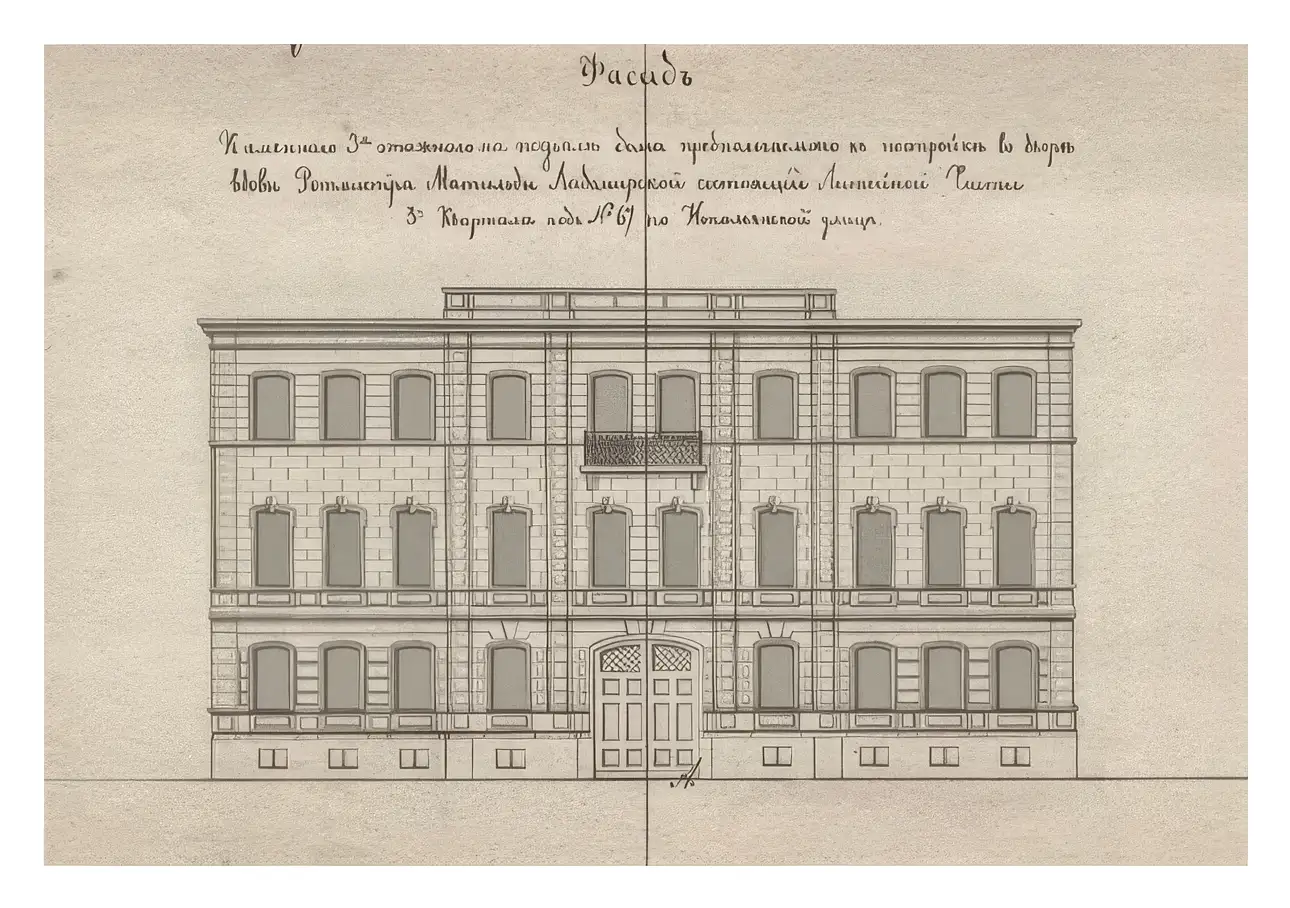 Фасадъ
Каменнаго 3хъ этажнаго на подвалѣ дома предполагаемаго къ постройкѣ въ дворѣ
вдовы Ротмистра Матильды состоящій Литейной Части
3го Квартала подъ № 67 по улицѣ.
A